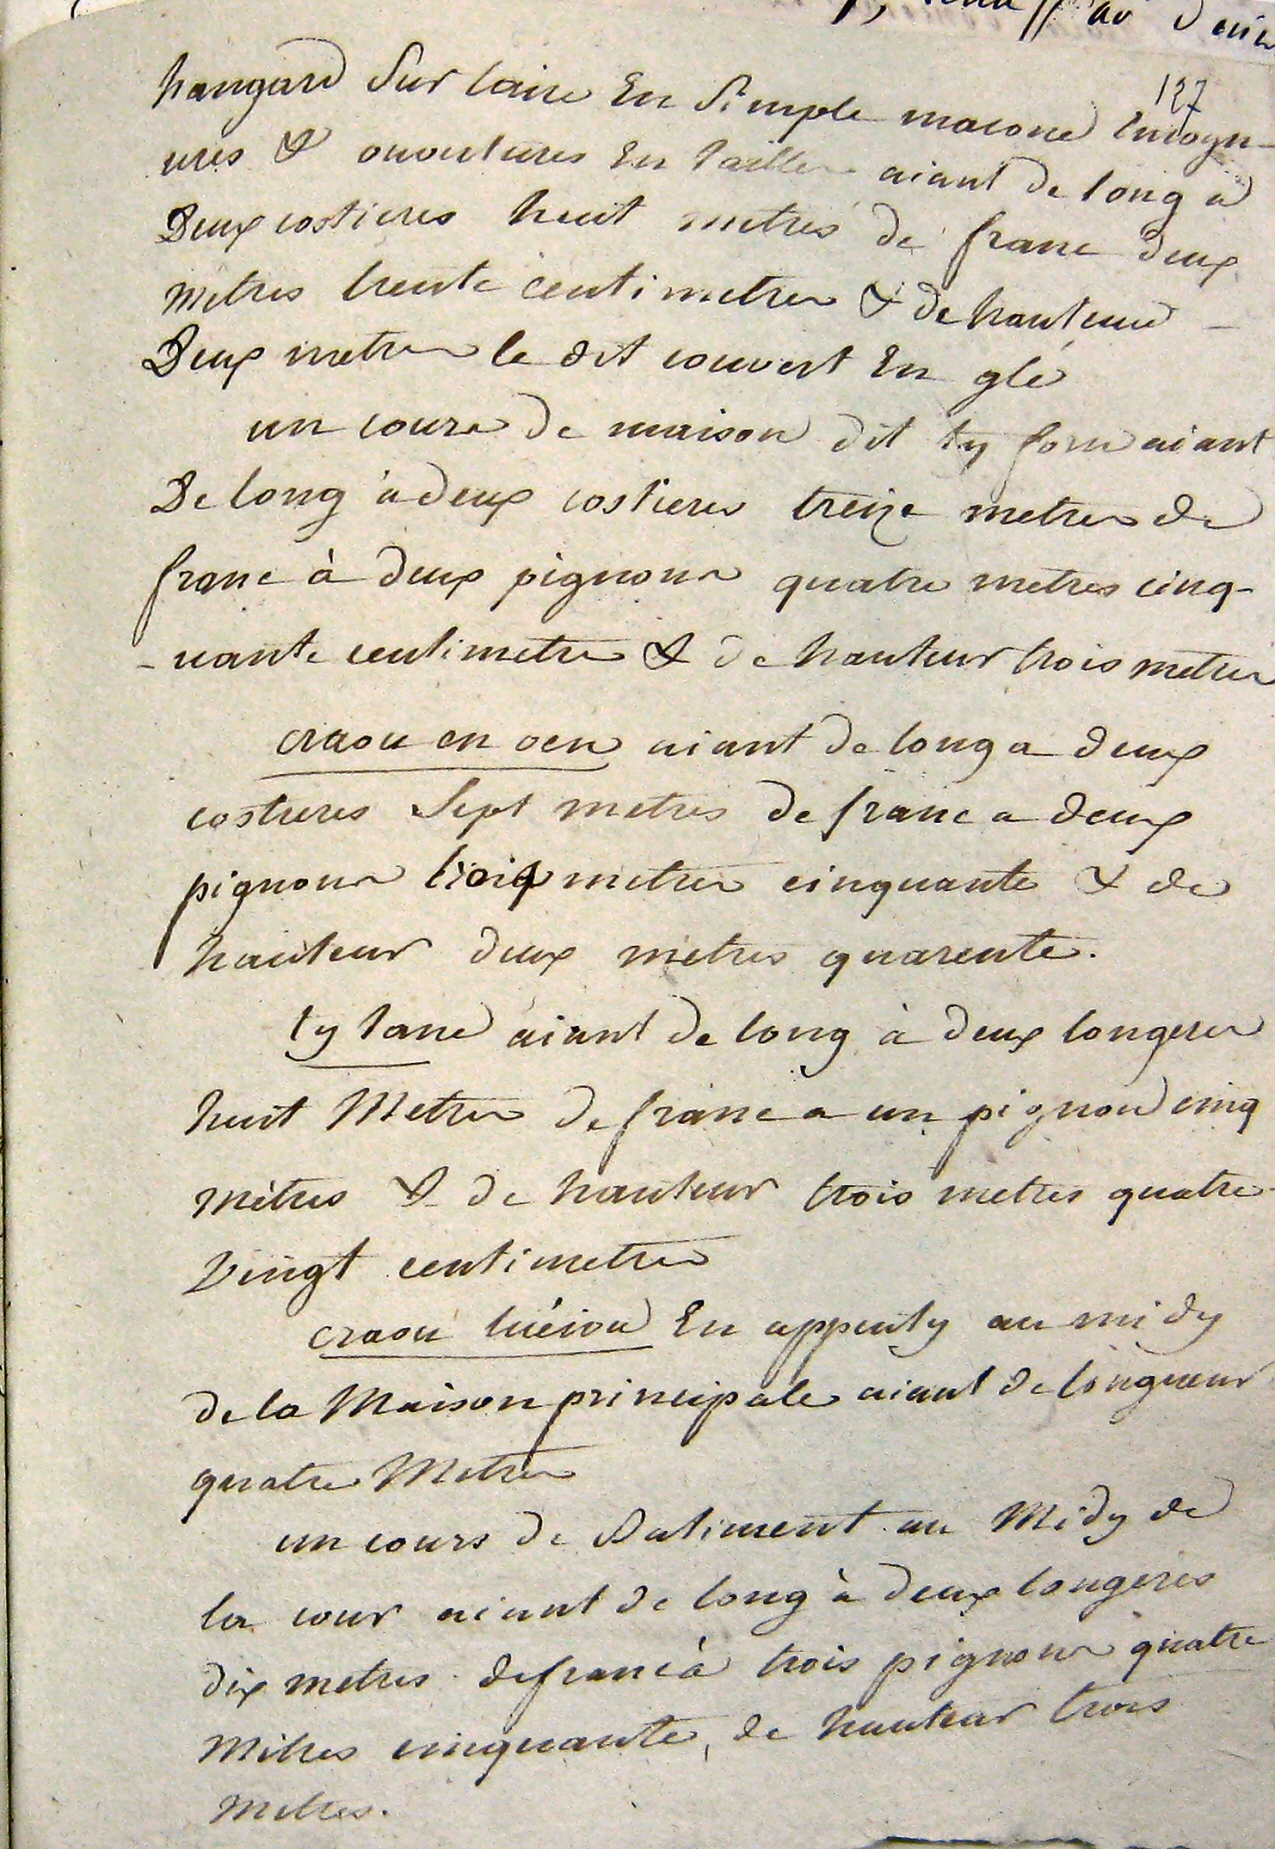 127
hangard Sur laire En Simple macone Encogn-
ures & ouvertures En taille aiant de long a
Deux costieres huit metres de franc deux
metres trente centimetres & de hauteur -
Deux metres le dit couvert En glé
un cours de maison dit ty forn aiant
De long à deux costieres treize metres de
franc à deux pignons quatre metres cinq-
-uante centimetres & de hauteur trois metres
craou an oen aiant de long a deux
costieres Sept metres de franc a deux
pignons trois metres cinquante & de
hauteur deux metres quarente.
ty tane aiant de long à deux longeres
huit Metres de franc a un pignon cinq
mètres & de hauteur trois metres quatre
Vingt centimetres
craou En appenty au midy
de la Maison principale aiant de longueur
quatre Metres
un cours de Batiment au Midy de
la cour aiant de long à deux longeres
dix metres de franc à trois pignons quatre
Metres cinquante, de hauteur trois
metres.